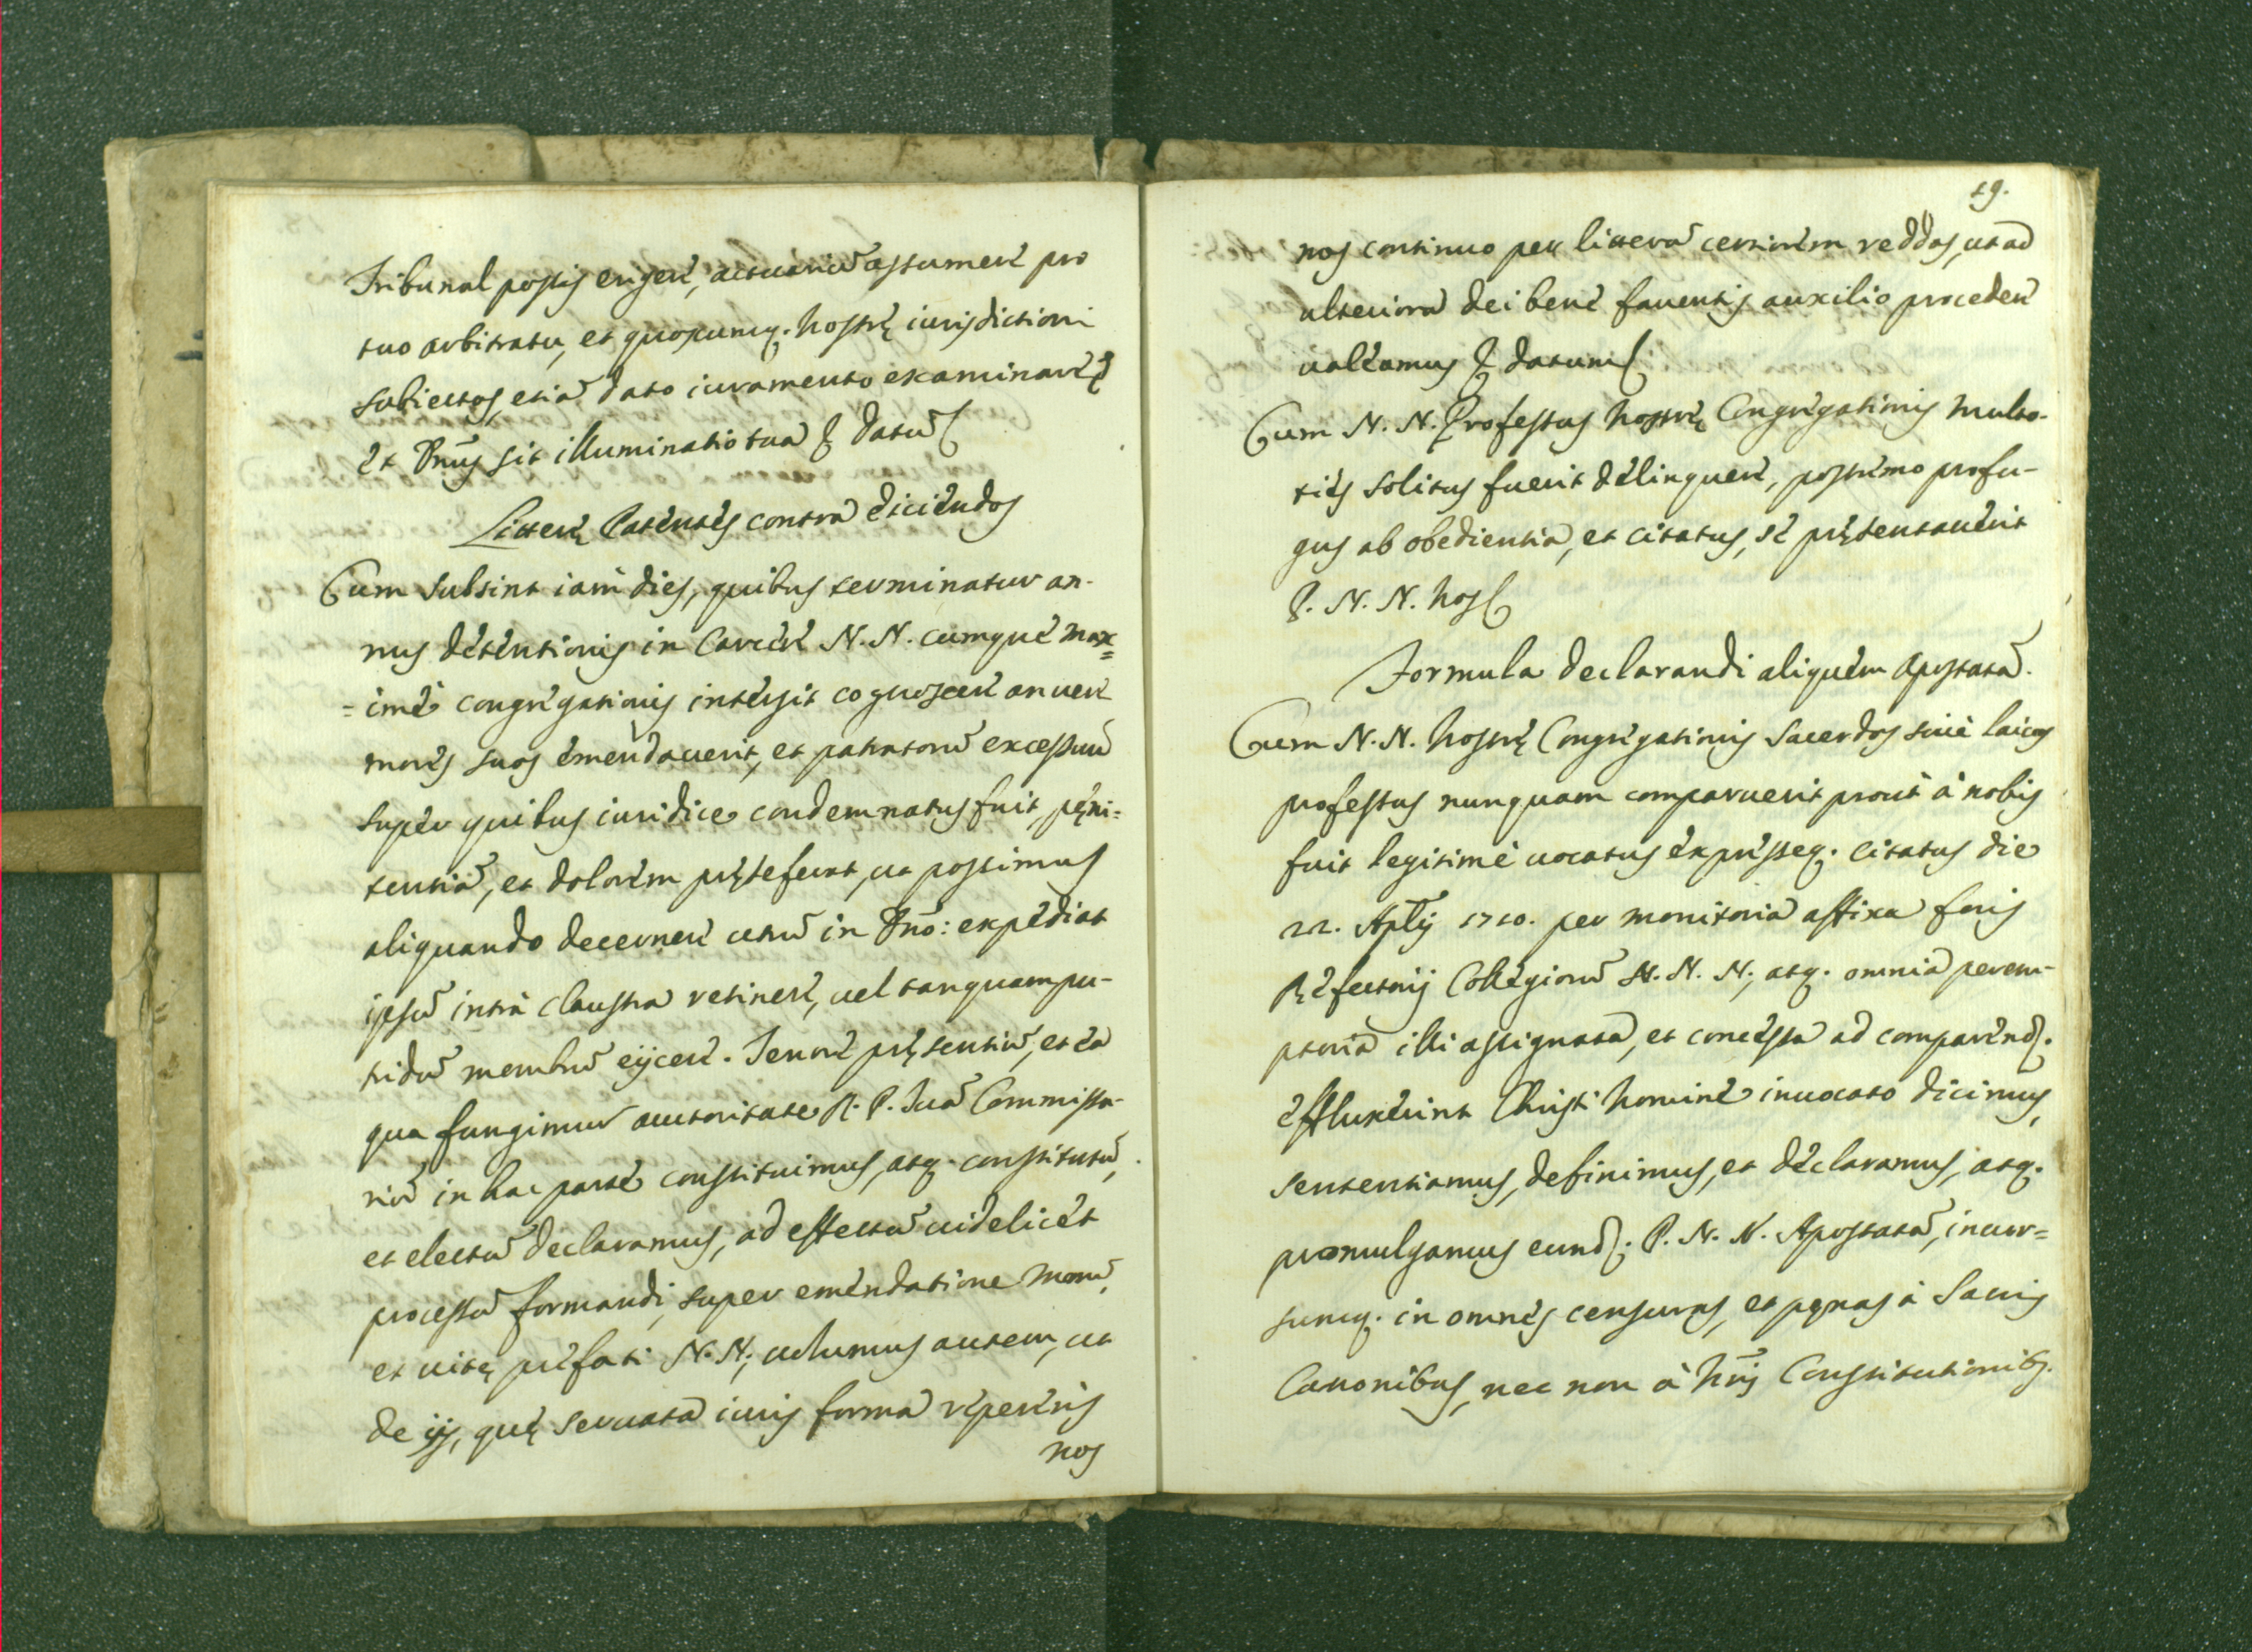 Tribunal possis erigere, actuariũ assumere pro
tuo arbitratu, et quoscumq. nostrę iurisdictioni
subiectos, etiã dato iuramento examinare &
et Dnũs sit illuminatio tua & datũ
Litterę Patentes contra eiciendos
Cum subsint iam dies, quibus terminatur an-
nus detentionis in Carcere N. N. cumque max=
=ime congregationis intersit cognoscere an uere
mores suos emendauerit, et patratorũ excessuũ
super quibus iuridice condemnatus fuit, pęni=
tentiã, et dolorem pręseferat, ut possimus
aliquando decernere utrũ in Dnõ: expediat
ipsũ intrà claustra retinere, uel tanquam pu-
tridũ membrũ eijcere. Tenore pręsentiũ, et ea
qua fungimur auctoritate R. P. Tuã Commissa-
riũ in hac parte constituimus, atq. constitutũ,
et electũ declaramus, ad effectũ uidelicet
processũ formandi, super emendatione morũ,
et uitę prefati N. N; uolumus autem, ut
de ijs, quę seruata iuris forma repereris
nos
19.
nos continuo per litteras certiorem reddas, ut ad
ulteriora dei bene fauentis auxilio procedere
ualeamus & datum
Cum N. N. Professus nostrę Congregationis multo-
ties solitus fuerit delinquere, postremo profu-
gus ab obedientia, et citatus, se pręsentauerit
P. N. N. nos
Formula declarandi aliquem Apostatã.
Cum N. N. nostrę Congregationis Sacerdos siue laicus
professus nunquam comparuerit prout à nobis
fuit legitimè uocatus expresseq. citatus die
22. Aplĩs 1710. per monitoria affixa foris
Refectorij Collegiorũ N. N. N; atq. omnia perem-
ptoria illi assignata, et concessa ad comparend.
effluxerint Christi nomine inuocato dicimus,
sententiamus, definimus, et declaramus, atq.
promulgamus eund. P. N. N. Apostatã, incur=
sumq. in omnes censuras, et pęnas à Sacris
Canonibus, nec non à nrĩs Constitutionib.